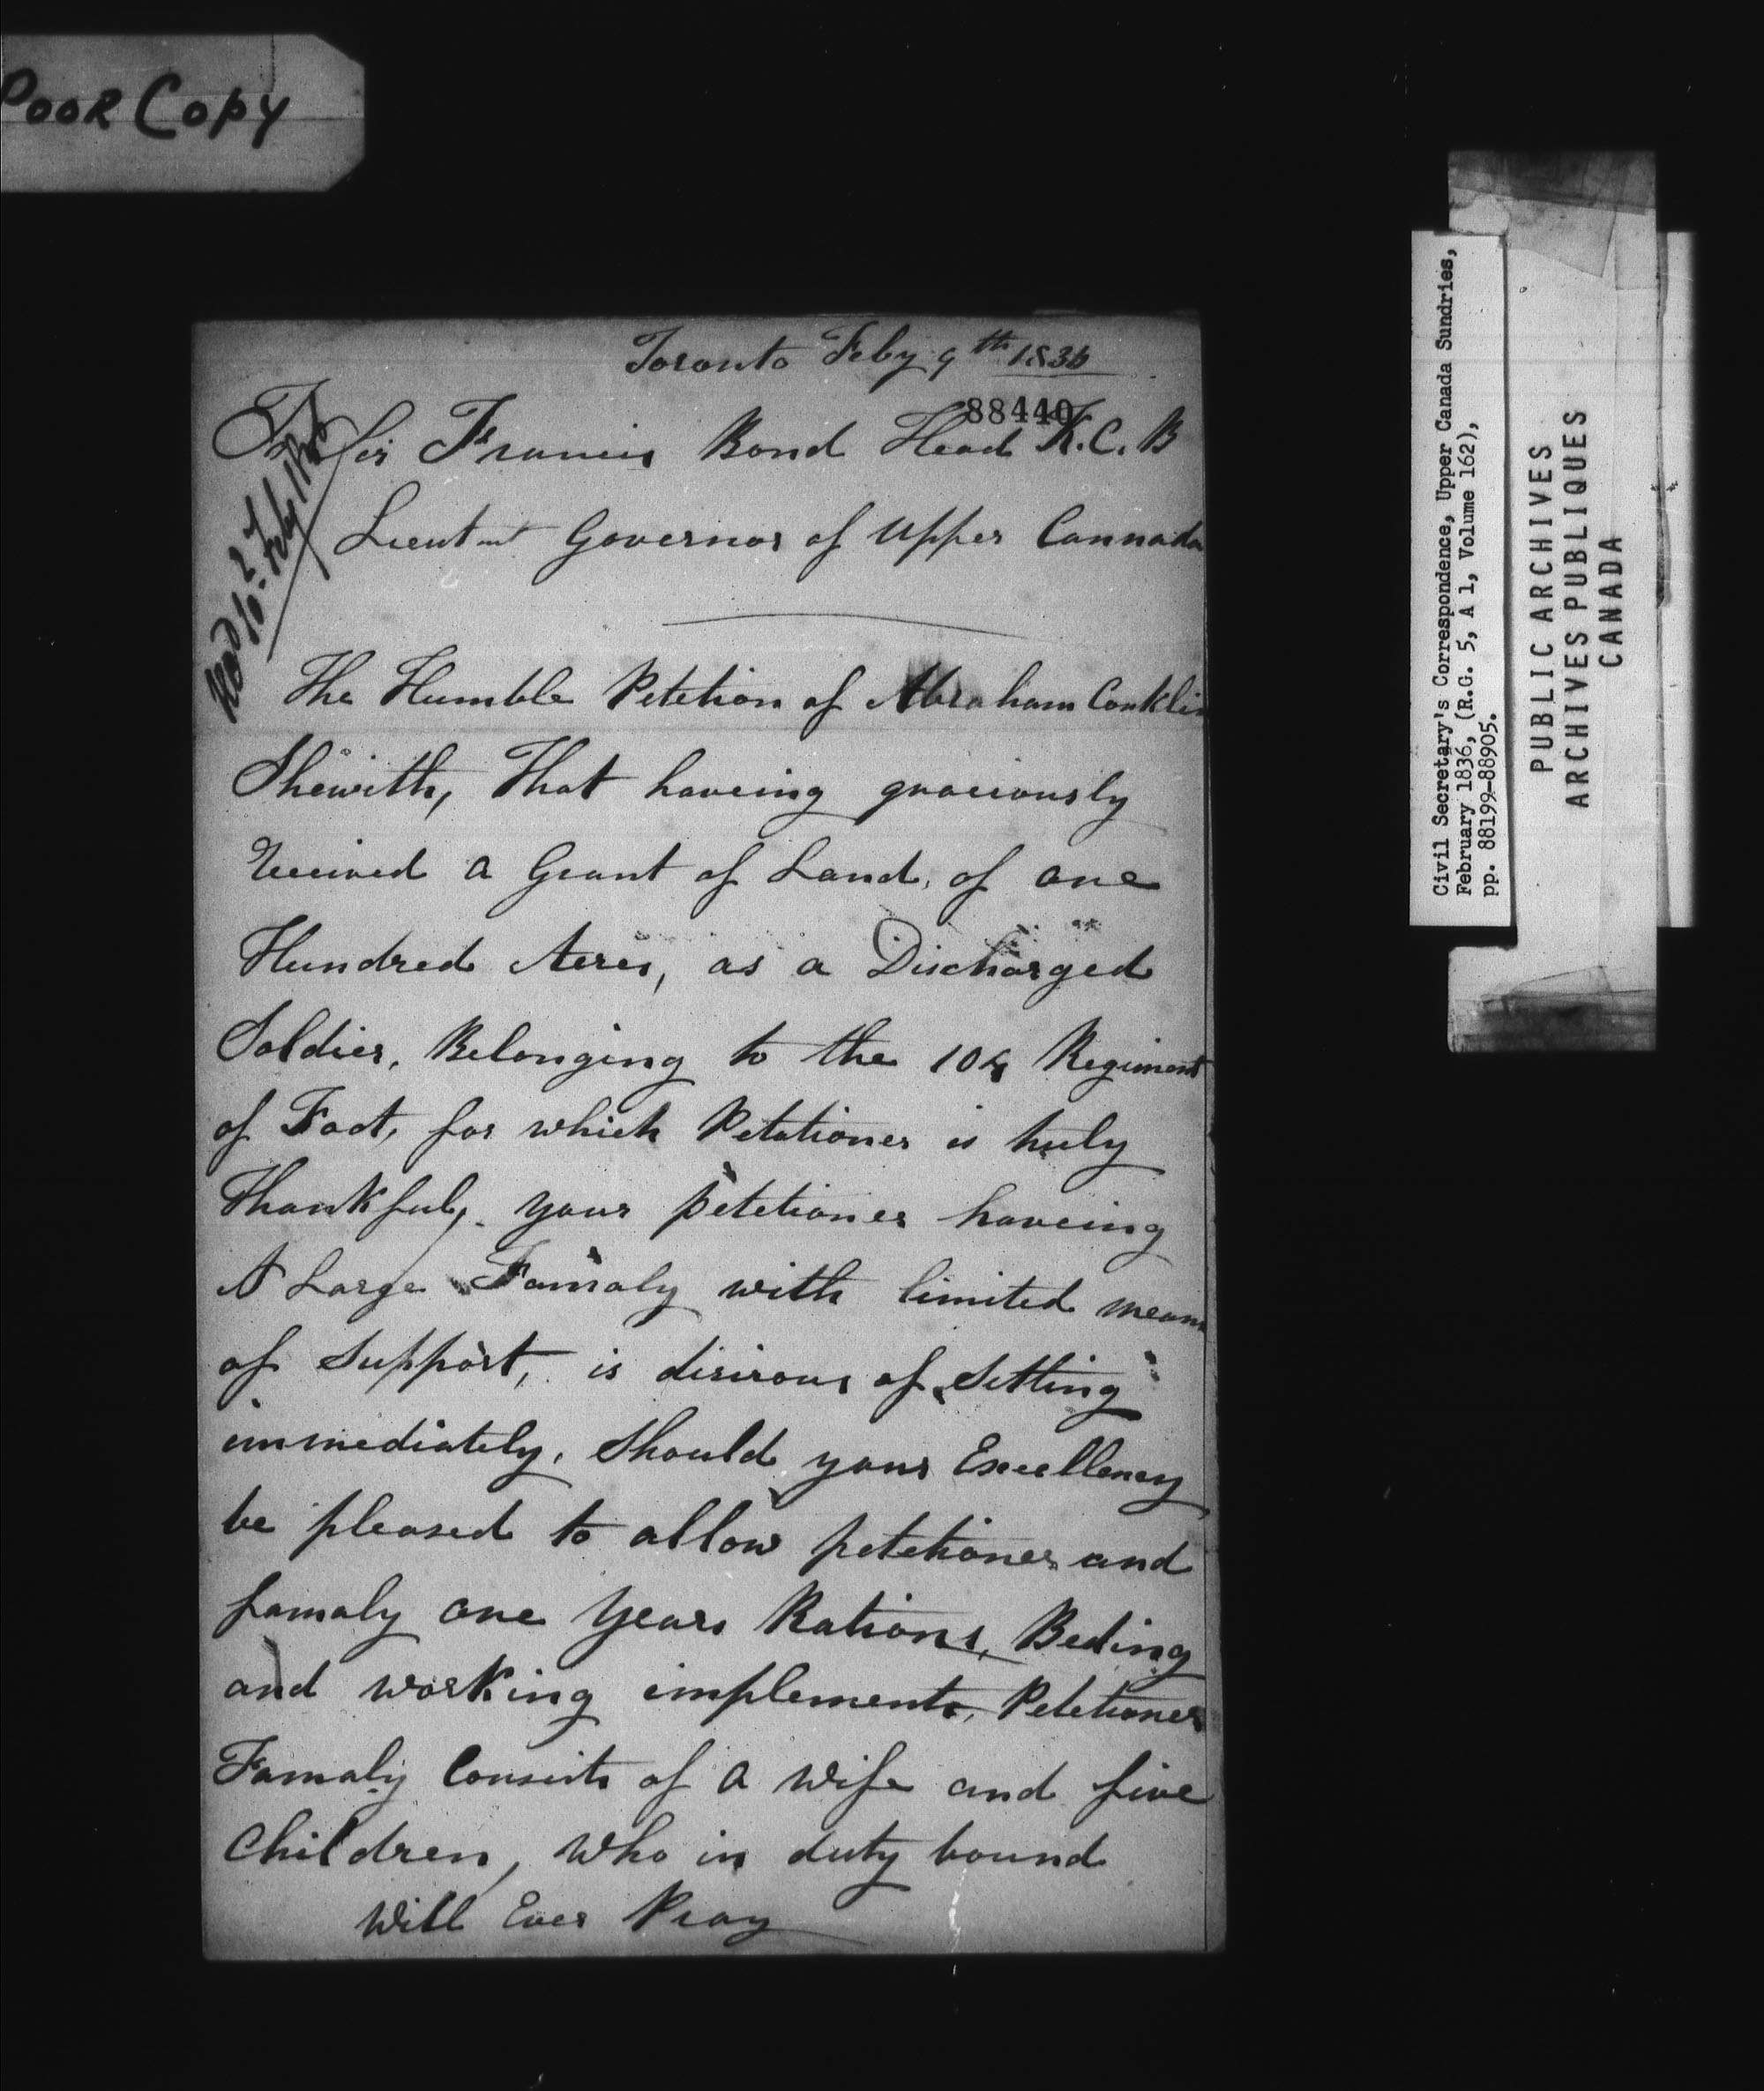 POOR COPY
Toronto Feby 9th 1836
88440
To Sir Francis Bond Head K.C.B
Lieutnt Governor of Upper Cannada
Recd 10 Feby
The Humble Petetion of Abraham Conklin
Shewith, That haveing graciously
Received a Grant of Land, of one
Hundred Acres, as a Discharged
Soldier, Belonging to the 104 Regiment
of Foot, for which Petetioner is truly
Thankful, your petetioner haveing
A Large Famaly with limited means
of Support, is disirous of Setting
immediately, Should your Excellency
be pleased to allow petetioner and
famaly one Years Rations, Beding
and working implements, Petetioner
Famaly Consists of a wife and five
Children, who in duty bound
Will Ever Pray
Civil Secretary's Correspondence, Upper Canada Sundries,
February 1836, (R.G. 5, A 1, Volume 162),
pp. 88199-88905.
PUBLIC ARCHIVES
ARCHIVES PUBLIQUES
CANADA